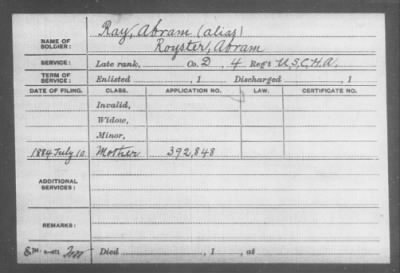 NAME OF SOLDIER: Ray, Abram (alias)
Royster, Abram
SERVICE: Late rank, Co. D, 4 Reg't U.S.C.H.A.
TERM OF SERVICE: Enlisted , 1 Discharged , 1
DATE OF FILING. CLASS. APPLICATION NO. LAW. CERTIFICATE NO.
Invalid,
Widow,
Minor,
1884 July 10 Mother 392,848
ADDITIONAL SERVICES:
REMARKS:
Died , 1 , at